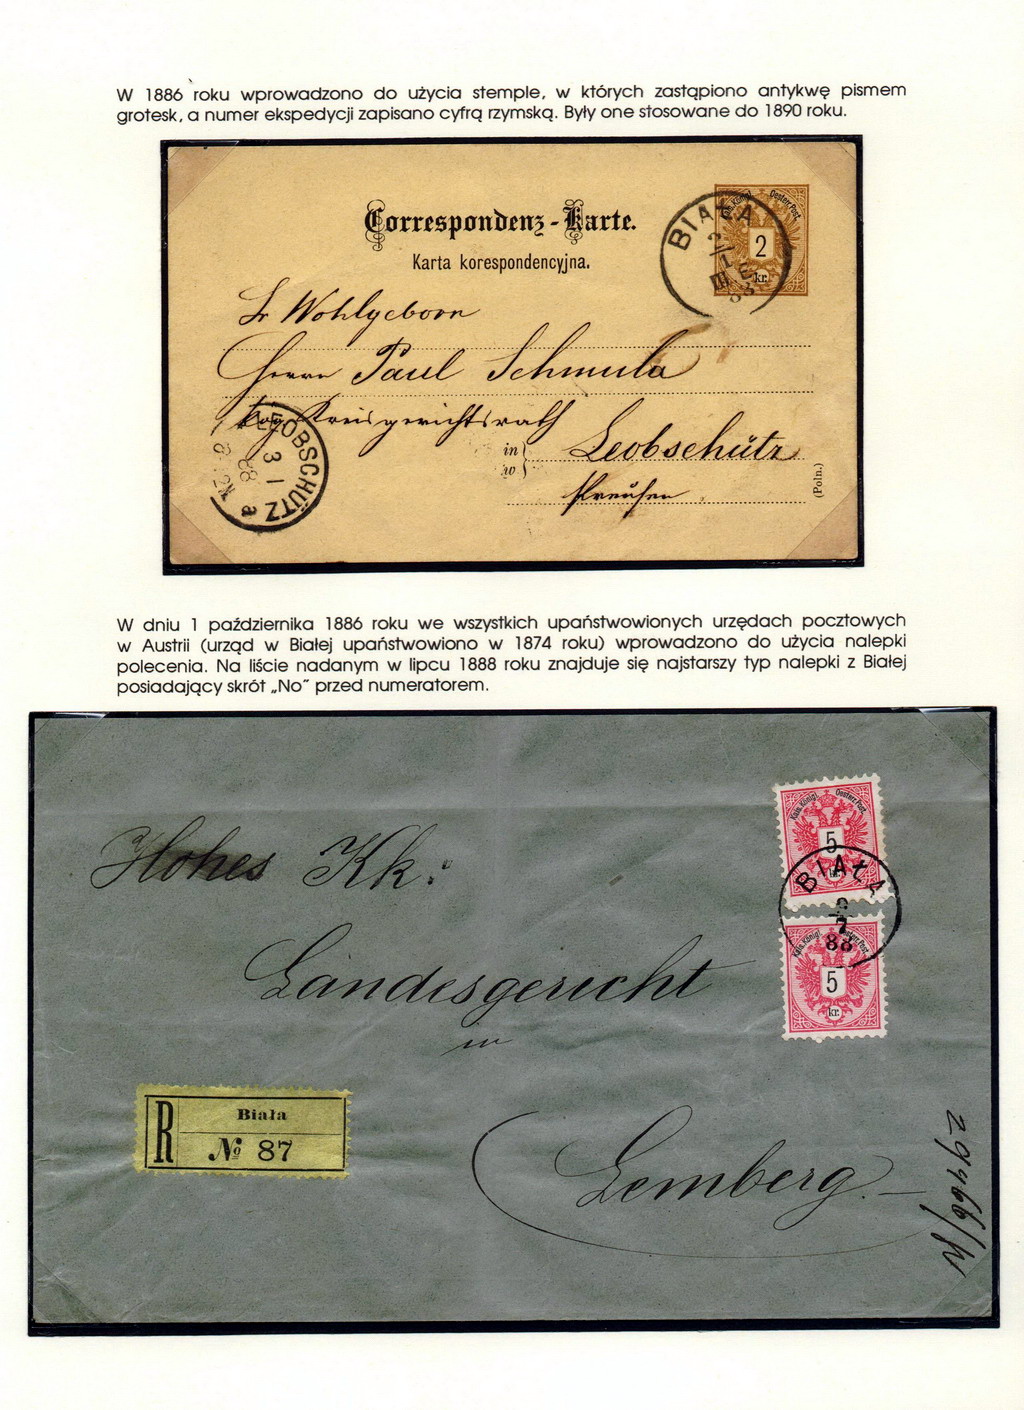 W 1886 roku wprowadzono do użycia stemple, w których zastąpiono antykwę pismem
grotesk, a numer ekspedycji zapisano cyfrą rzymską. Były one stosowane do 1890 roku.
Correspondenz-Karte.
Karta korespondencyjna.
Kais. Königl. Oesterr. Post.
2
kr.
BIAŁA
2/1
III E
Sr Wohlgeborn
Herrn Paul Schmula
Kreisgerichtsrath
in
w
Leobschütz
Preußen
(Poln.)
LEOBSCHÜTZ
3 1
88
a
W dniu 1 października 1886 roku we wszystkich upaństwowionych urzędach pocztowych
w Austrii (urząd w Białej upaństwowiono w 1874 roku) wprowadzono do użycia nalepki
polecenia. Na liście nadanym w lipcu 1888 roku znajduje się najstarszy typ nalepki z Białej
posiadający skrót „No" przed numeratorem.
Kais. Königl. Oesterr. Post.
5
kr.
BIAŁA
7
88
Kais. Königl. Oesterr. Post.
5
kr.
Hohes Kk:
Landesgericht
in
Lemberg
R
Biała
№ 87